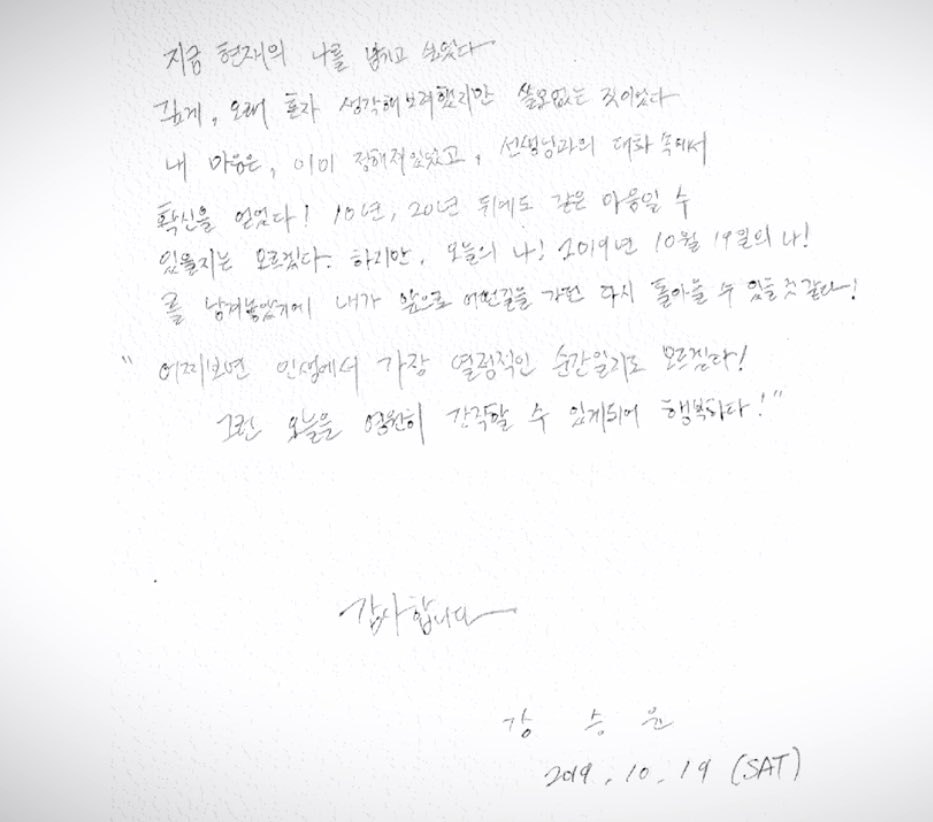 지금 현재의 나를 남기고 싶었다
깊게, 오래 혼자 생각해보려했지만 쓸모없는 것이었다
내 마음은, 이미 정해져있었고, 선생님과의 대화 속에서
확신을 얻었다! 10년, 20년 뒤에도 같은 마음일 수
있을지는 모르겠다. 하지만, 오늘의 나! 2019년 10월 19일의 나!
를 남겨놓았기에 내가 앞으로 어떤길을 가던 다시 돌아올 수 있을것 같다!
"어찌보면 인생에서 가장 열정적인 순간일지도 모르겠다!
그런 오늘을 영원히 간직할 수 있게되어 행복하다!"
감사합니다
강 승 윤
2019. 10. 19 (SAT)